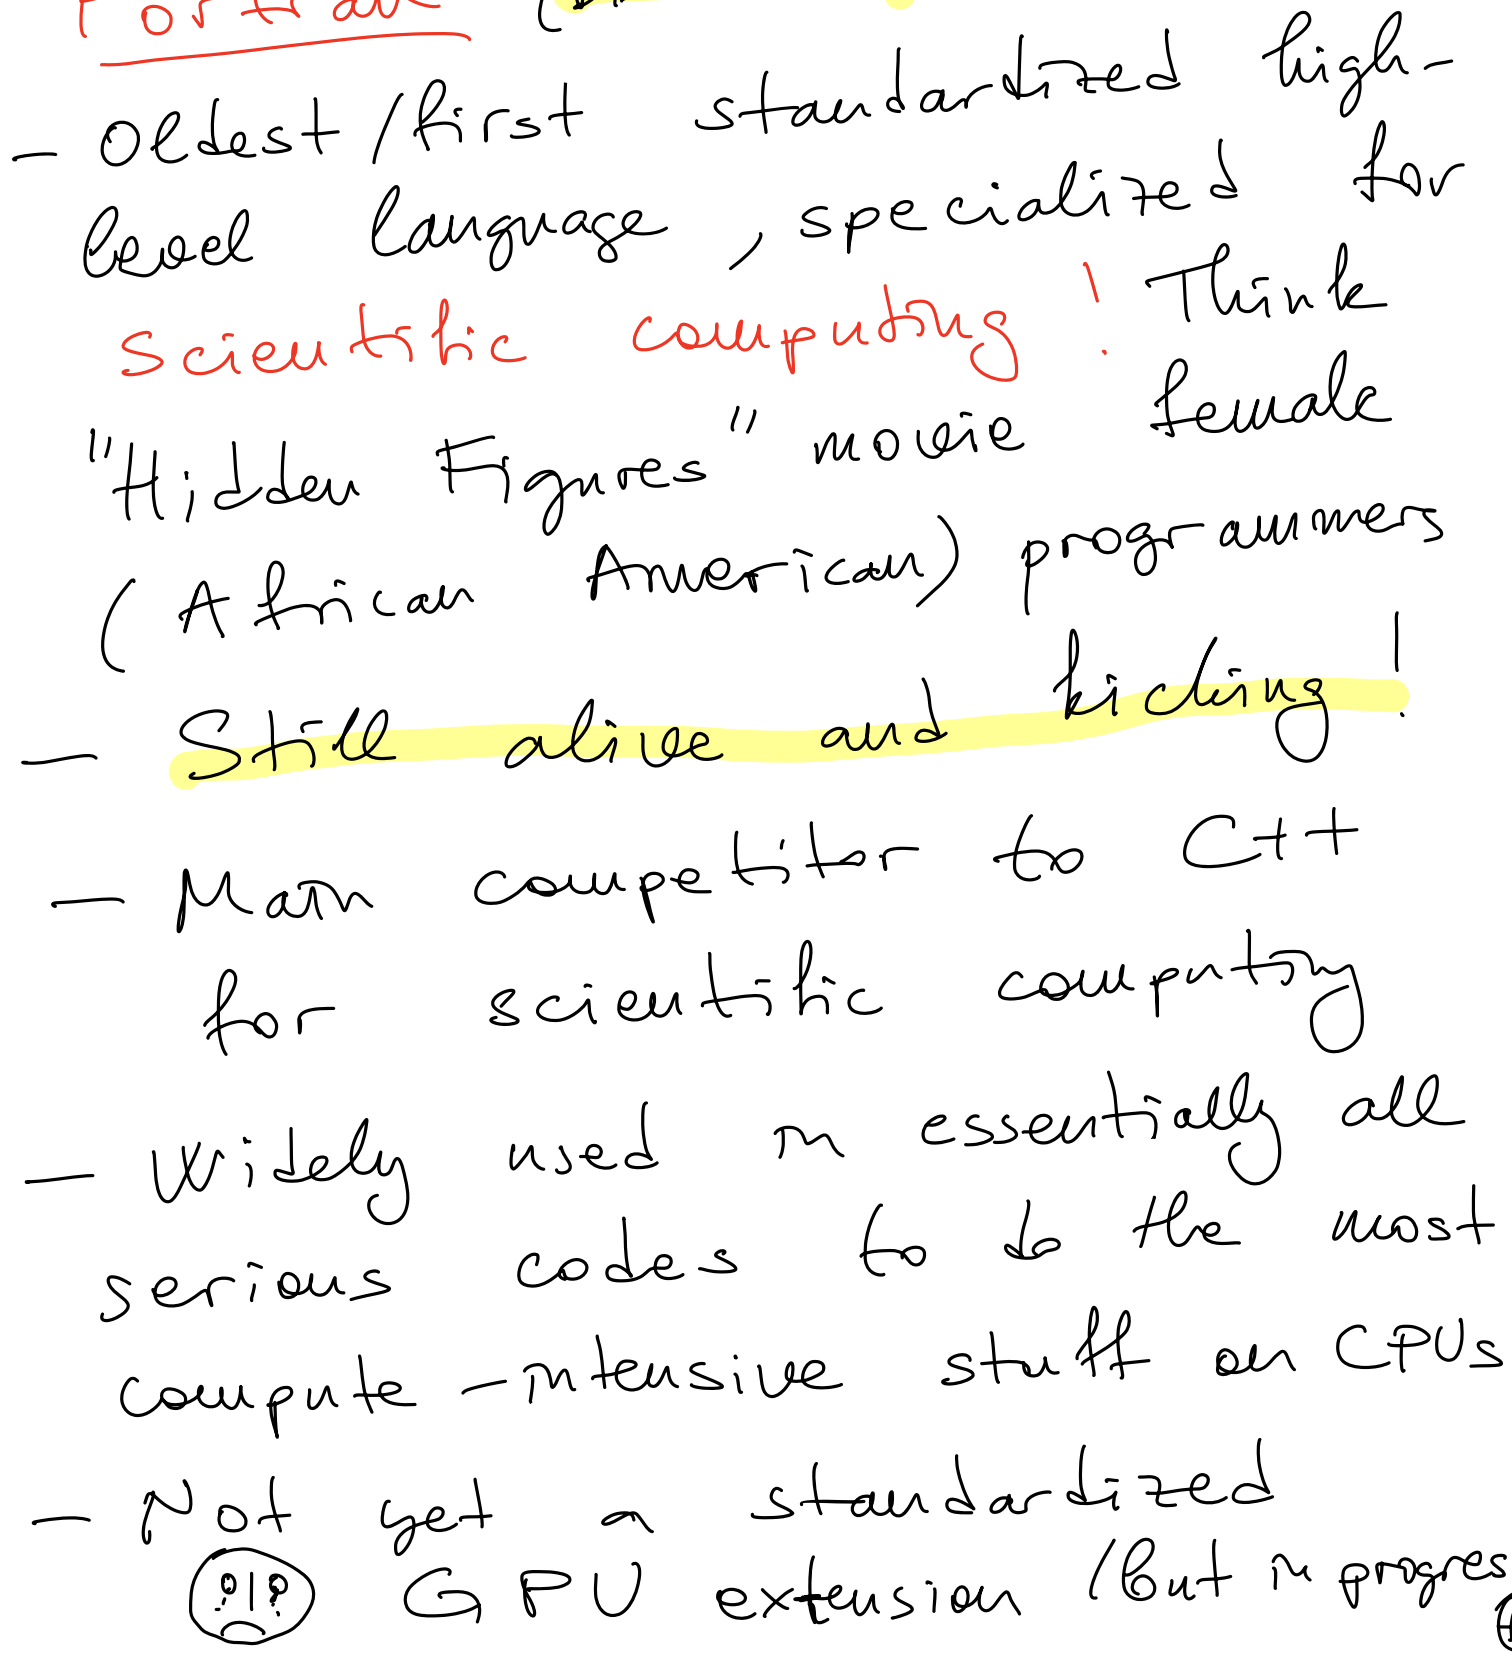 Fortran (
- Oldest/first standardized high-
level language, specialized for
scientific computing! Think
"Hidden Figures" movie female
(African American) programmers
- Still alive and kicking!
- Main competitor to C++
for scientific computing
- Widely used in essentially all
serious codes to do the most
compute-intensive stuff on CPUs
- Not yet a standardized
GPU extension (but in progres